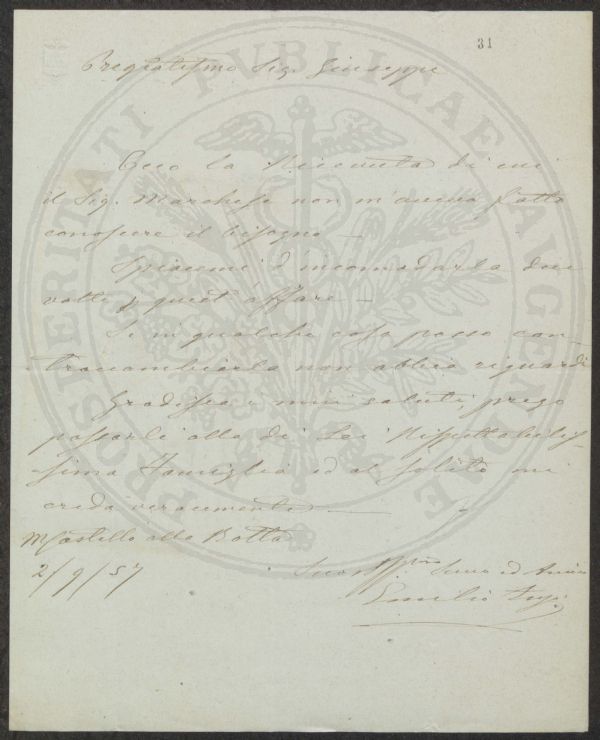 31
Pregiatissimo Sig. Giuseppe
Ecco la Ricevuta di cui
il Sig. Marchese non m'aveva fatto
conoscere il bisogno —
Spiacemi d'incomodarla due
volte p quest'affare —
Se in qualche cosa posso con-
traccambiarla non abbia riguardi
Gradisca i miei saluti, prego
passarli alla di Lei Rispettabilis-
sima Famiglia ed al solito mi
creda veracemente
Castello alla Botta
2/9/57
Suo Servo ed Amico
Emilio
PROSPERITATI PUBLICAE AUGENDAE